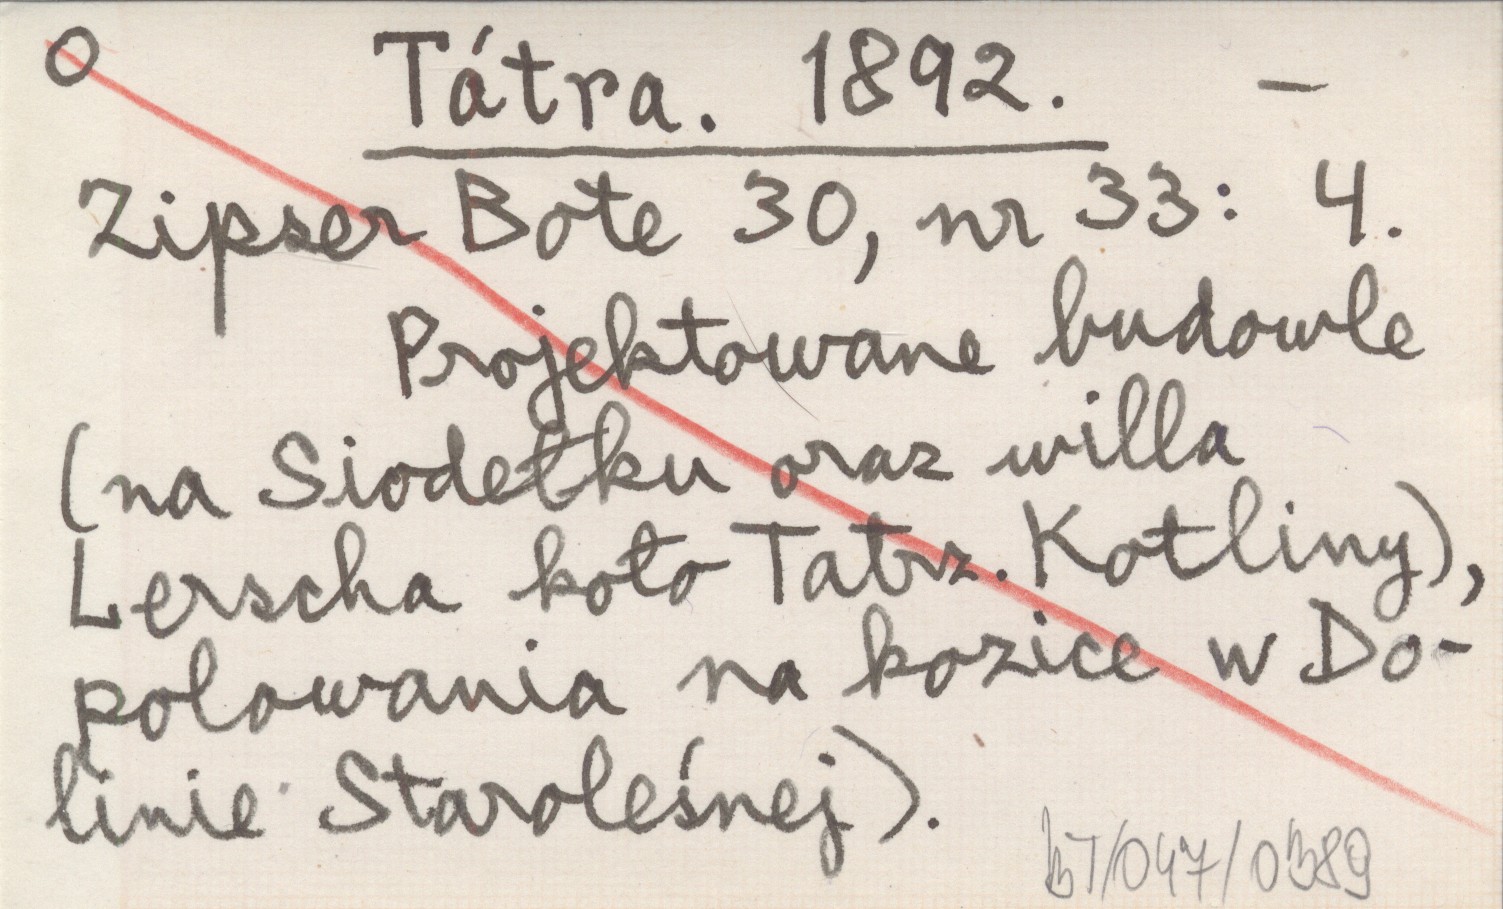 O Tátra. 1892. —
Zipser Bote 30, nr 33: 4.
Projektowane budowle
(na Siodełku oraz willa
Lerscha koło Tatrz. Kotliny),
polowania na kozice w Do-
linie Staroleśnej).
BT/047/0389